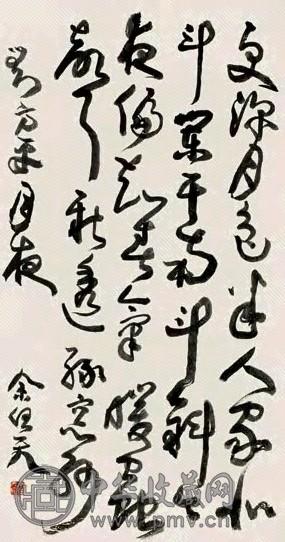 更深月色半人家北
斗闌干南斗斜今
夜偏知春氣暖蟲
聲新透綠窗紗
劉方平月夜
余伯天
中华收藏网
www.pmv.cn